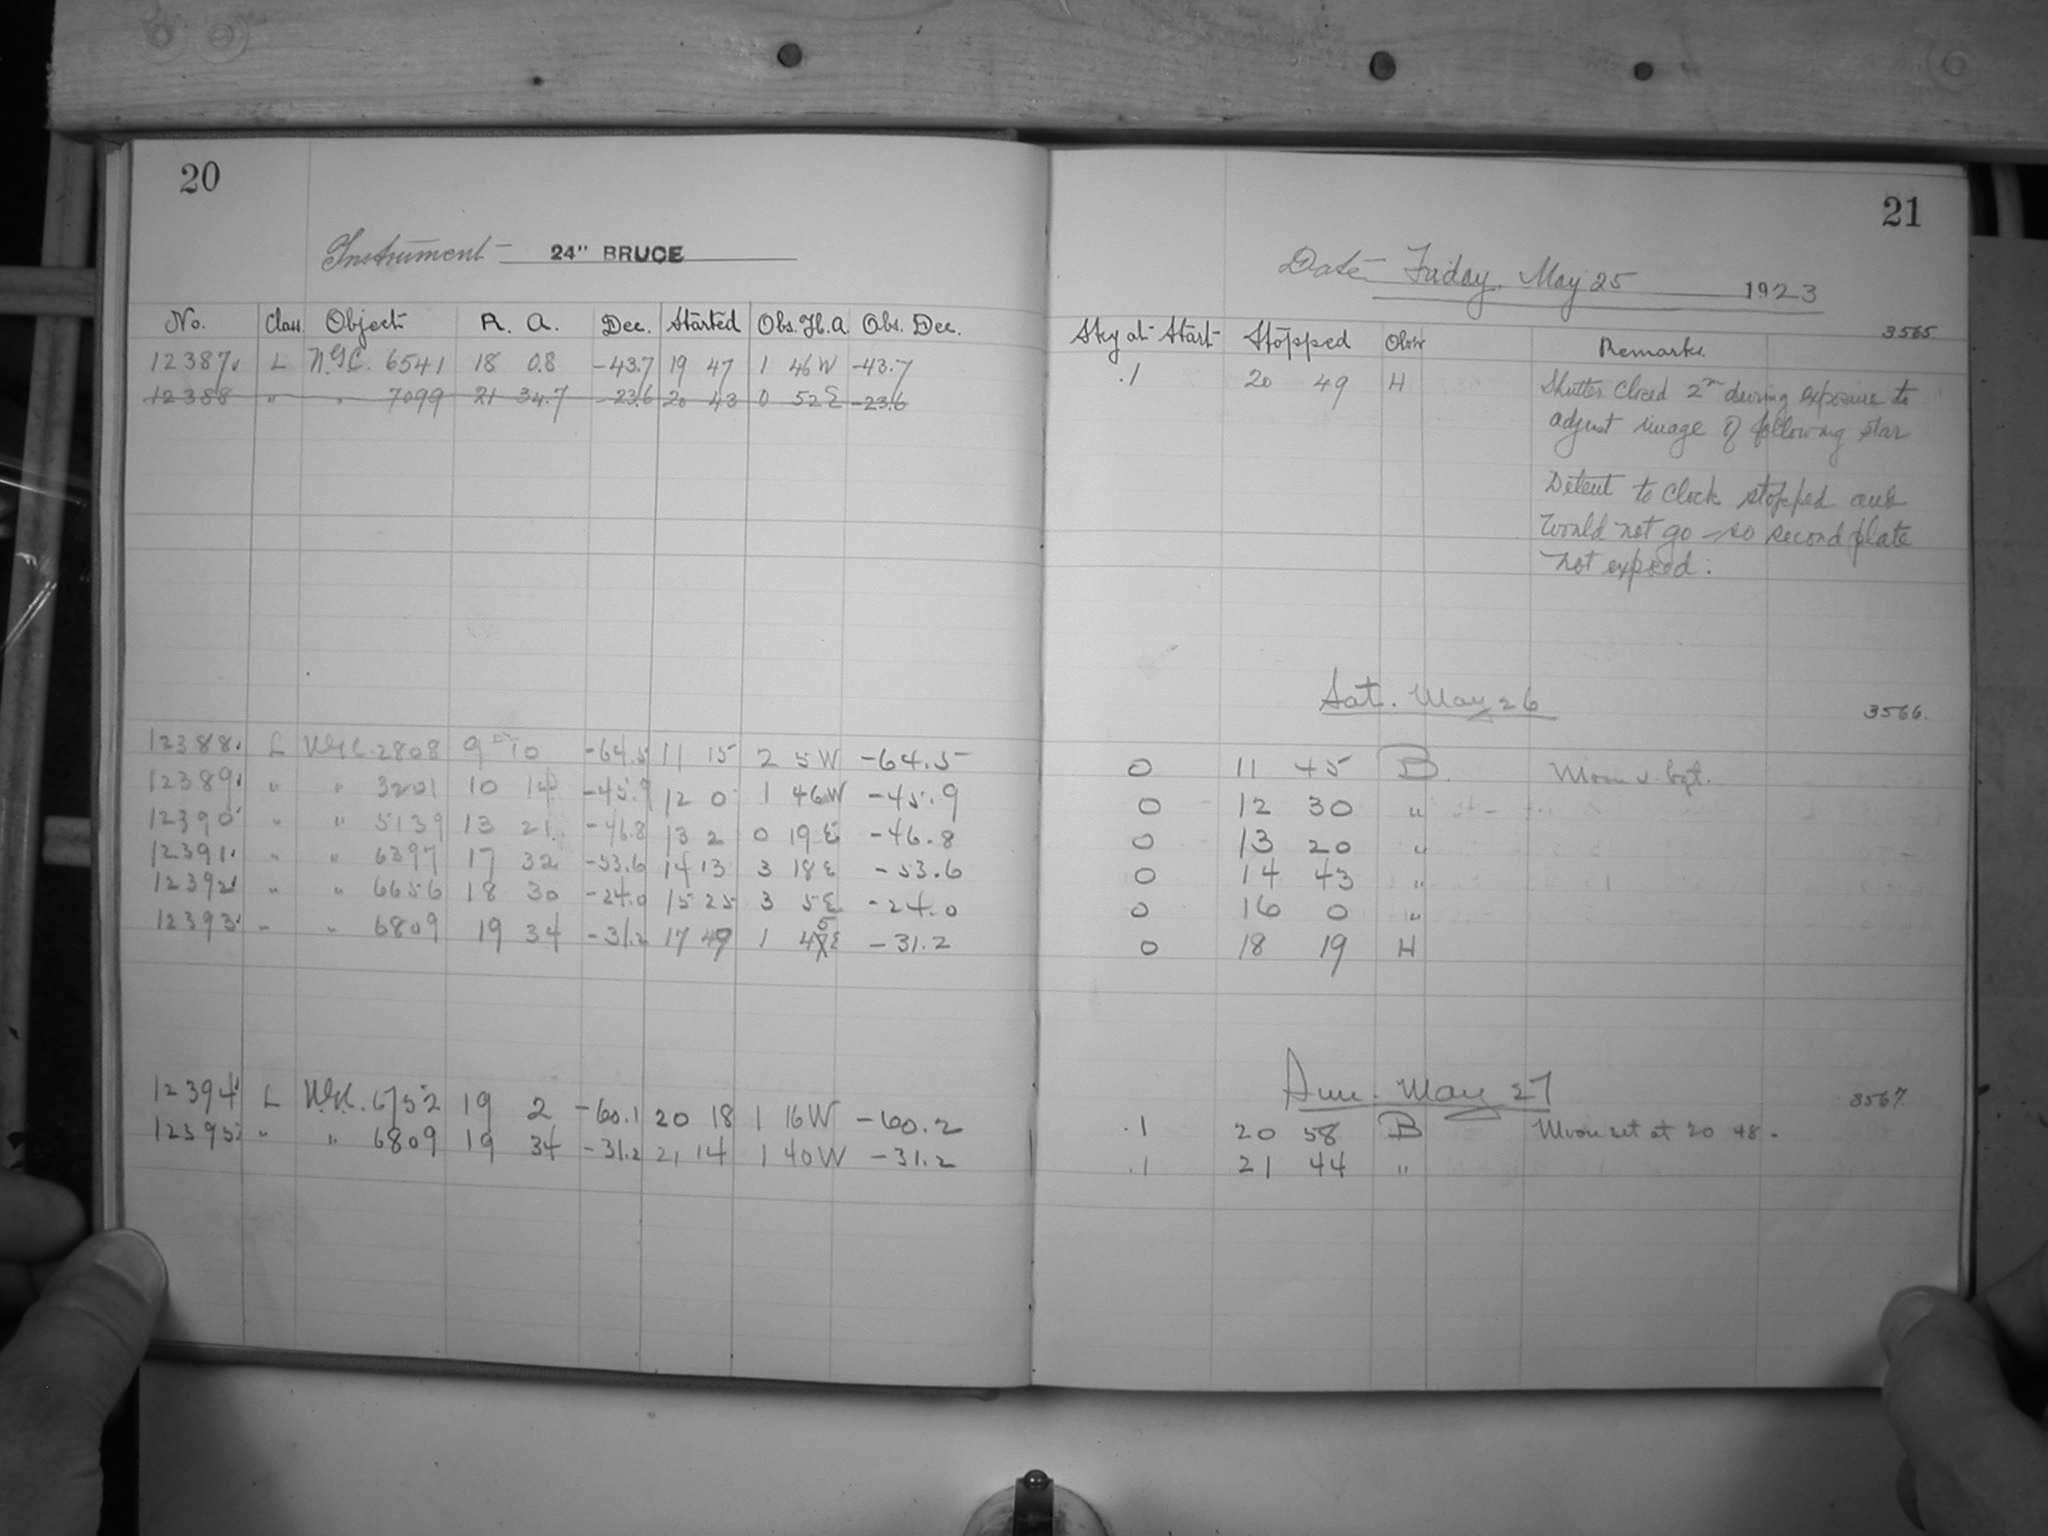 20
Instrument 24" BRUCE
No. Class Object R. A. Dec. Started Obs. H. A. Obs. Dec.
12387 L N.G.C. 6541 18 0.8 -43.7 19 47 1 46 W -43.7
12388 " " 7099 21 34.7 -23.6 20 43 0 52 E -23.6
12388 L N.G.C. 2808 9 10 -64.5 11 15 2 5 W -64.5
12389 " " 3201 10 14 -45.9 12 0 1 46 W -45.9
12390 " " 5139 13 21 -46.8 13 2 0 19 E -46.8
12391 " " 6397 17 32 -53.6 14 13 3 18 E -53.6
12392 " " 6656 18 30 -24.0 15 25 3 5 E -24.0
12393 " " 6809 19 34 -31.2 17 49 1 45 E -31.2
12394 L N.G.C. 6752 19 2 -60.1 20 18 1 16 W -60.2
12395 " " 6809 19 34 -31.2 21 14 1 40 W -31.2
21
Date Friday, May 25 1923
3565
Sky at Start Stopped Obsr Remarks
.1 20 49 H Shutter closed 2m during exposure to
adjust image of following star
Detent to clock stopped and
would not go - so second plate
not exposed.
Sat. May 26
3566.
0 11 45 B. Moon v. bgt.
0 12 30 "
0 13 20 "
0 14 43 "
0 16 0 "
0 18 19 H
Sun. May 27
3567.
.1 20 58 B Moon set at 20 48.
.1 21 44 "